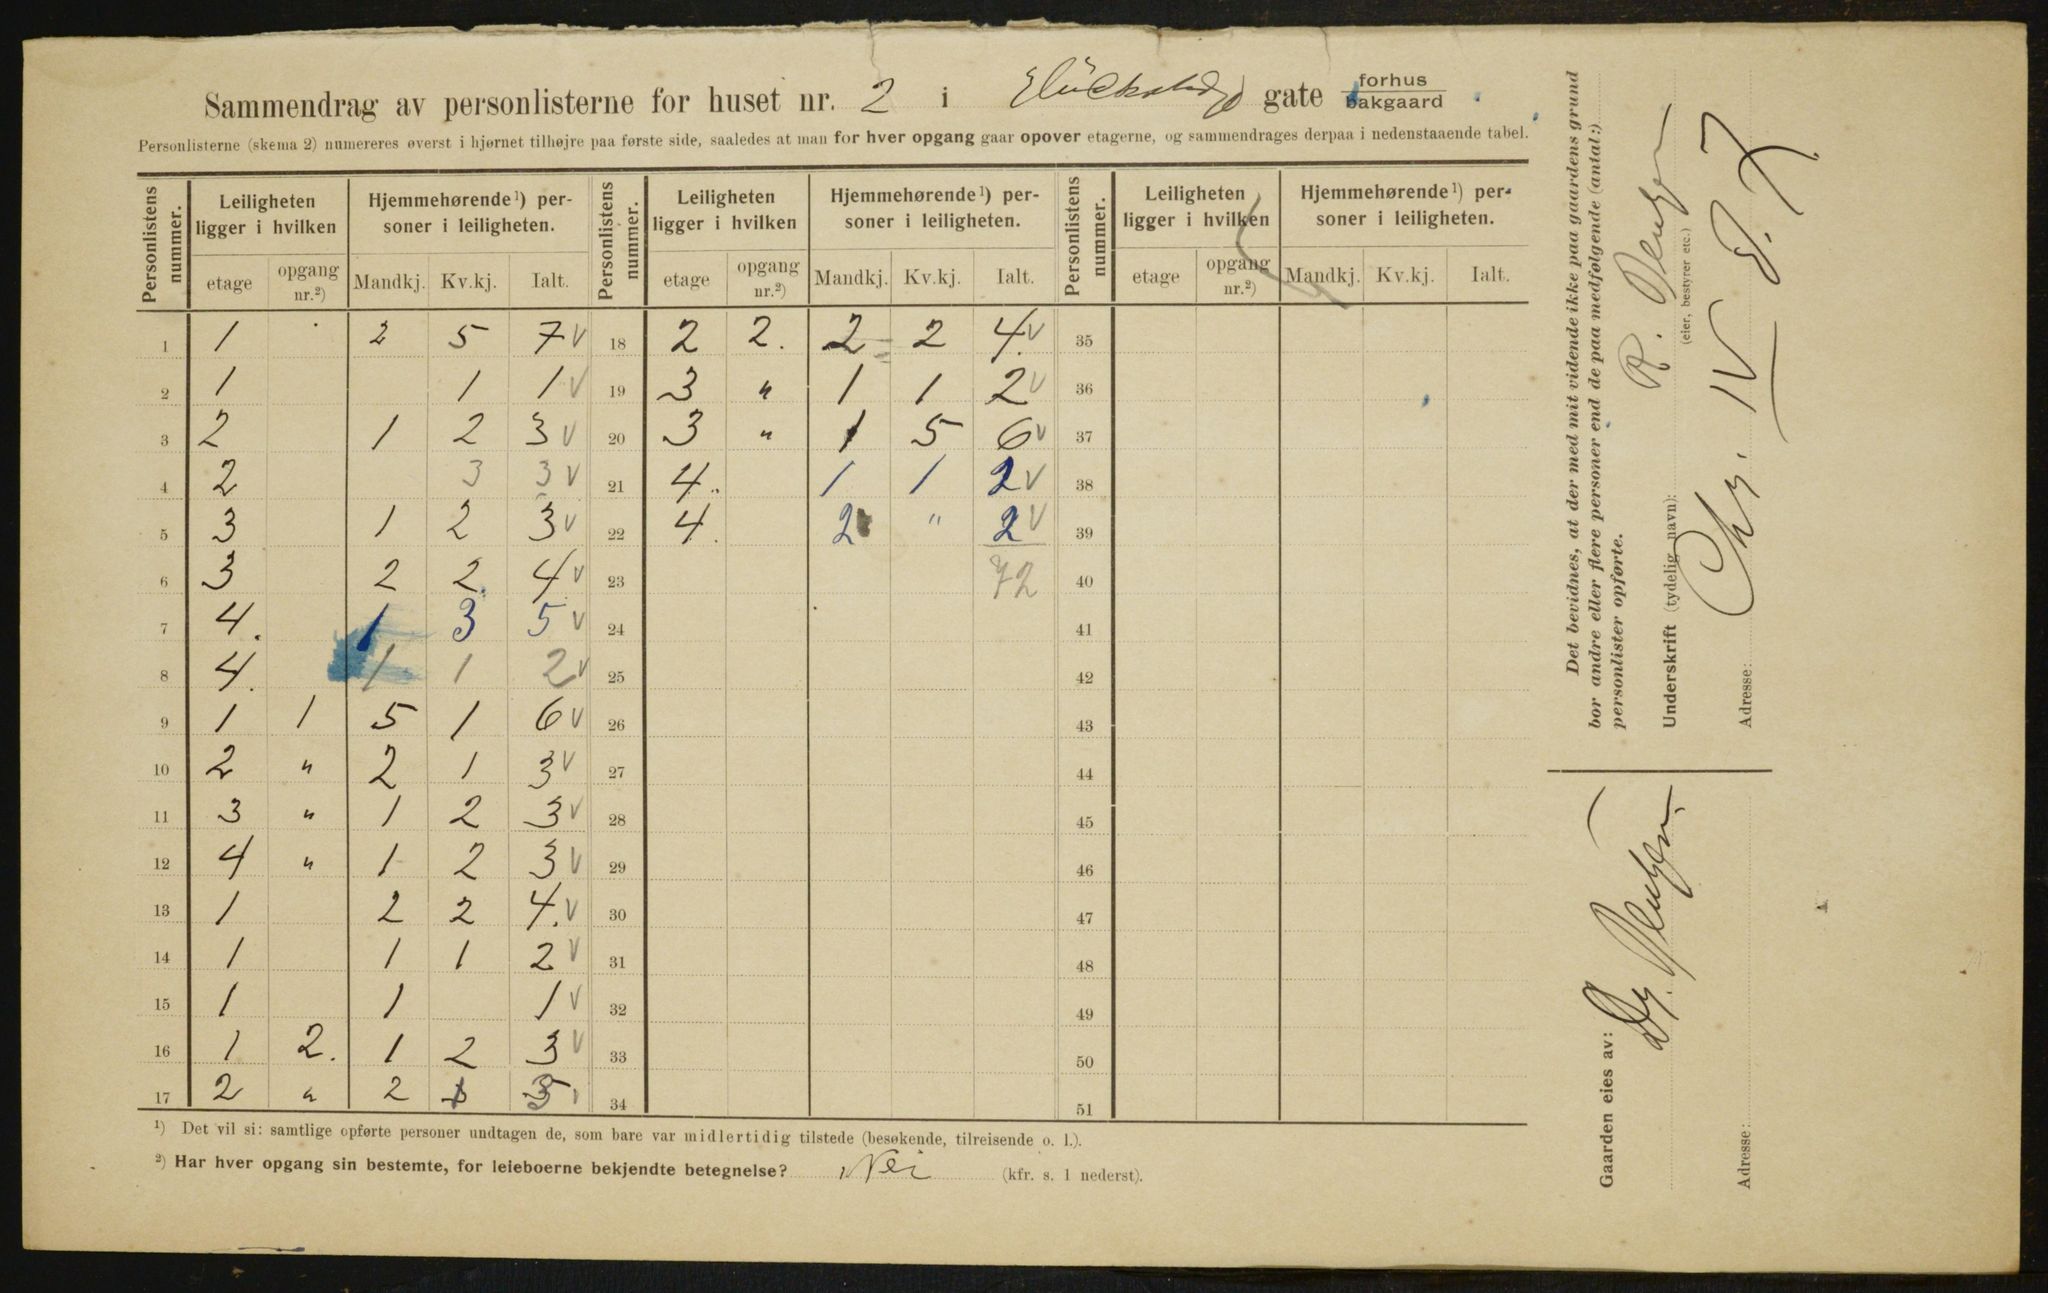 Sammendrag av personlisterne for huset nr. 2 i Glückstad gate forhus bakgaard
Personlisterne (skema 2) numereres øverst i hjørnet tilhøjre paa første side, saaledes at man for hver opgang gaar opover etagerne, og sammendrages derpaa i nedenstaaende tabel.
Personlistens nummer. Leiligheten ligger i hvilken Hjemmehørende ¹) personer i leiligheten. Personlistens nummer. Leiligheten ligger i hvilken Hjemmehørende ¹) personer i leiligheten. Personlistens nummer. Leiligheten ligger i hvilken Hjemmehørende ¹) personer i leiligheten.
etage opgang nr.²) Mandkj. Kv.kj. Ialt. etage opgang nr.²) Mandkj. Kv.kj. Ialt. etage opgang nr.²) Mandkj. Kv.kj. Ialt.
1 1 2 5 7 v 18 2 2. 2 2 4. v 35
2 1 1 1 v 19 3 " 1 1 2 v 36
3 2 1 2 3 v 20 3 " 1 5 6 v 37
4 2 3 3 v 21 4. 1 1 2 v 38
5 3 1 2 3 v 22 4. 2 " 2 v 39
6 3 2 2 4 v 23 72 40
7 4. 1 3 5 v 24 41
8 4. 1 1 2 v 25 42
9 1 1 5 1 6 v 26 43
10 2 " 2 1 3 v 27 44
11 3 " 1 2 3 v 28 45
12 4 " 1 2 3 v 29 46
13 1 2 2 4. v 30 47
14 1 1 1 2 v 31 48
15 1 1 1 v 32 49
16 1 2. 1 2 3 v 33 50
17 2 " 2 34 51
¹) Det vil si: samtlige opførte personer undtagen de, som bare var midlertidig tilstede (besøkende, tilreisende o. l.).
²) Har hver opgang sin bestemte, for leieboerne bekjendte betegnelse? Nei (kfr. s. 1 nederst).
Det bevidnes, at der med mit vidende ikke paa gaardens grund
bor andre eller flere personer end de paa medfølgende (antal:)
personlister opførte.
Underskrift (tydelig navn): R.
(eier, bestyrer etc.)
Adresse: Chr. IV
Gaarden eies av:
Adresse: